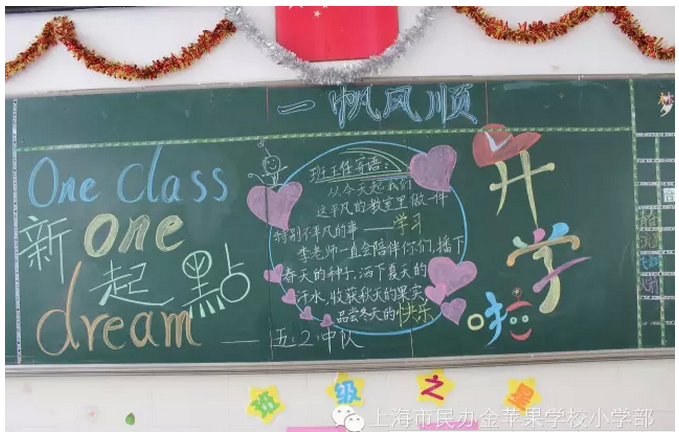 一帆风顺
One class
新 one
起 點
dream
班主任寄语：
从今天起我们
这平凡的教室里做一件
特别不平凡的事——学习
李老师一直会陪伴你们，播下
春天的种子，洒下夏天的
汗水，收获秋天的果实
品尝冬天的快乐
——五.2.中队
开
学
啦
班级之星
上海市民办金苹果学校小学部